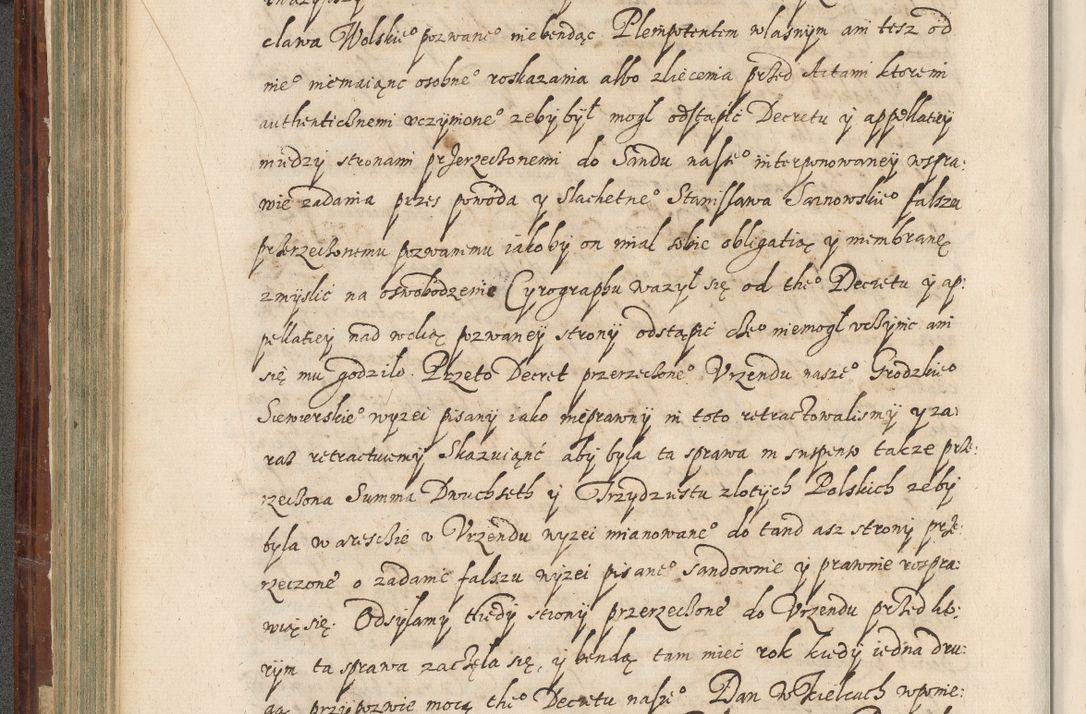 clawa Wolskieº pozwaneº niebendąc Plenipotentem własnym ani tesz od
nieº niemaiąnc osobneº roskazania albo zliecenia przed Actami ktoremi
authenticznemi vczynioneº zeby był mogl odstąpić Decretu y appellatiey
miedzy stronami przerzeczonemi do Sandu naszeº interponowaney wspra:
wie zadania przes powoda y Slachetneº Stanisława Sarnowskieº falszu
przerzeczonemu pozwanemu iakoby on mial sobie obligatią y membranę
zmyslić na oswobodzenie Cyrographu wazyl się od theº Decretu y ap:
pellatiey nad wolią pozwaney strony odstąpić cżeº niemogl vczynic ani
się mu godzilo. Przeto Decret przerzeczoneº Vrzendu naszeº Grodzkieº
Siewierskieº wyzei pisany iako nieprawny in toto retractowalismy y za:
raz retractuiemy Skazuiąnć aby byla ta sprawa in suspenso takze prze:
rzeczona Summa Dwuchseth y Trzydziestu zlotych Polskich zeby
byla w areschie v Vrzendu wyzei mianowaneº do tand asz strony prze:
rzeczone o zadanie falszu wyzei pisaneº sandownie y prawnie rospra:
wią się. Odsylamy thedy strony przerzeczone do Vrzendu przed kto:
rym ta sprawa zaczęla się, y bendą tam mieć rok kiedy iedna dru:
gą przypozwie mocą theº Decretu naszeº Dan w Kielcach wponie: